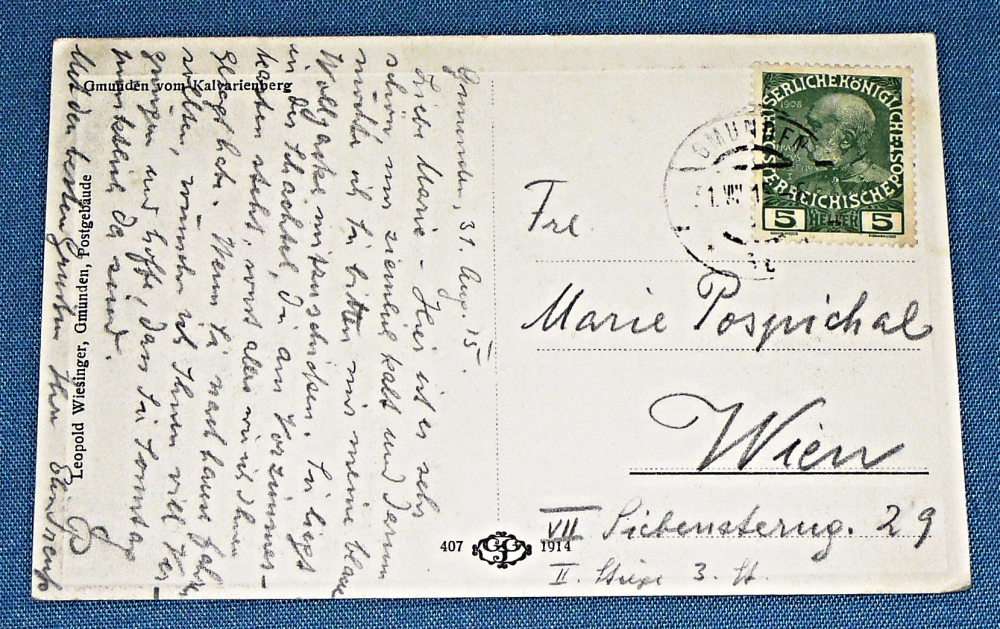 Gmunden vom Kalvarienberg
Leopold Wiesinger, Gmunden, Postgebäude
Gmunden, 31. Aug. 15.
Liebe Marie - Hier ist es sehr
schön, nur ziemlich kalt und darum
möchte ich Sie bitten mir meine blaue
Wolljacke nachzuschicken. Sie liegt
in der Schachtel, die am Vorzimmer-
kasten steht, sonst alles wie ich Ihnen
gesagt habe. Wenn Sie nach Hause fahren
sollten, wünsche ich Ihnen viel Ver-
gnügen und hoffe, dass Sie Sonntag
pünktlich da sind.
Mit den besten Grüssen Ihre
Frl.
Marie Pospichal
Wien
VII Siebensterng. 29
II. Stiege 3. St.
407 1914
GMUNDEN
31. VIII 1
KAISERLICHE KÖNIGLICHE ÖSTERREICHISCHE POST
1908
5 HELLER 5